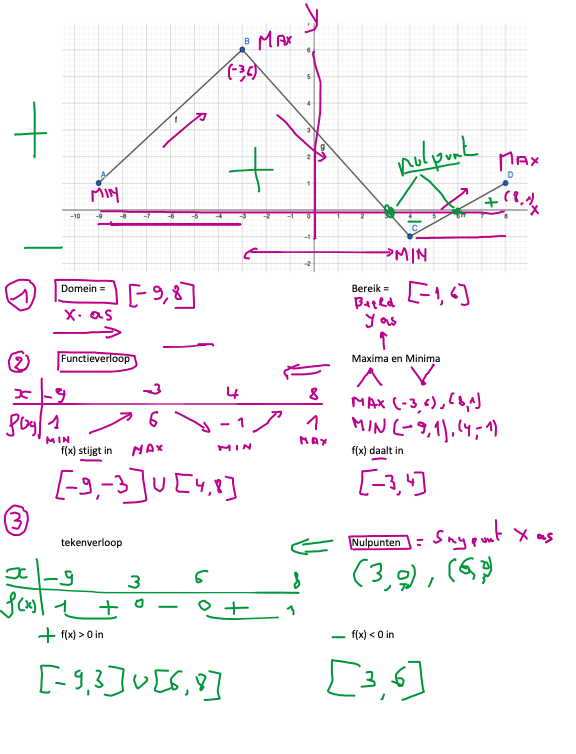 y
B MAX
(-3,6)
6
5
4
3
2
1
-1
-2
+
+
f
g
nulpunt
MAX
A
D
MIN
+ (8,1)
x
-10 -9 -8 -7 -6 -5 -4 -3 -2 -1 0 1 2 3 4 5 6 7 8
−
−
C
MIN
1 Domein = [-9,8]
x-as
Bereik = [-1,6]
Beeld
y as
2 Functieverloop
Maxima en Minima
x | -9 -3 4 8
f(x) | 1 6 -1 1
MIN MAX MIN MAX
MAX (-3,6), (8,1)
MIN (-9,1), (4,-1)
f(x) stijgt in
[-9,-3] ∪ [4,8]
f(x) daalt in
[-3,4]
3
tekenverloop
Nulpunten = Snypunt X as
(3,0), (6,0)
x | -9 3 6 8
f(x) | 1 + 0 − 0 + 1
+ f(x) > 0 in
[-9,3] ∪ [6,8]
− f(x) < 0 in
[3,6]